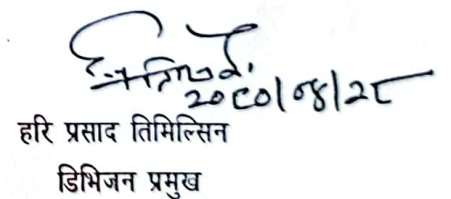 २०८०/०४/२८
हरि प्रसाद तिमिल्सिन
डिभिजन प्रमुख